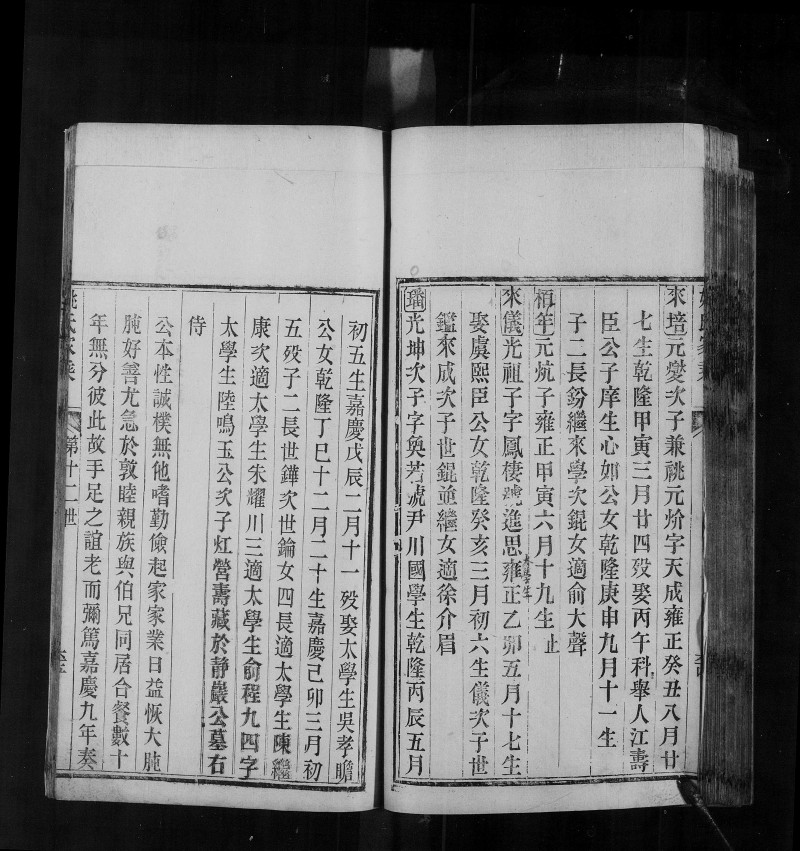 來培元燮次子兼祧元炌字天成雍正癸丑八月廿
七生乾隆甲寅三月廿四歿娶丙午科舉人江壽
臣公子庠生心如公女乾隆庚申九月十一生
子二長鈖繼來學次錕女適俞大聲
楨年元炕子雍正甲寅六月十九生止
來儀光祖子字鳳棲號進思雍正乙卯五月十七生
娶虞熙臣公女乾隆癸亥三月初六生儀次子世
鑑來成次子世錕並繼女適徐介眉
璠光坤次子字奐若號尹川國學生乾隆丙辰五月
初五生嘉慶戊辰二月十一歿娶太學生吳孝瞻
公女乾隆丁巳十二月二十生嘉慶己卯三月初
五歿子二長世鏵次世錀女四長適太學生陳繼
康次適太學生朱耀川三適太學生俞程九四字
太學生陸鳴玉公次子灴營壽藏於靜巖公墓右
侍
公本性誠樸無他嗜勤儉起家家業日益恢大肫
肫好善尤急於敦睦親族與伯兄同居合餐數十
年無分彼此故手足之誼老而彌篤嘉慶九年奏
姚氏家乘
第十二世